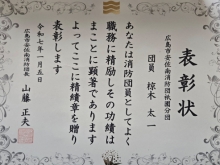 表彰状
広島市安佐南消防団祇園分団
団員 椋木太一
あなたは消防団員としてよく
職務に精励しその功績は
まことに顕著であります
よってここに精績章を贈り
表彰します
令和七年一月五日
広島市安佐南消防団長
山藤正夫